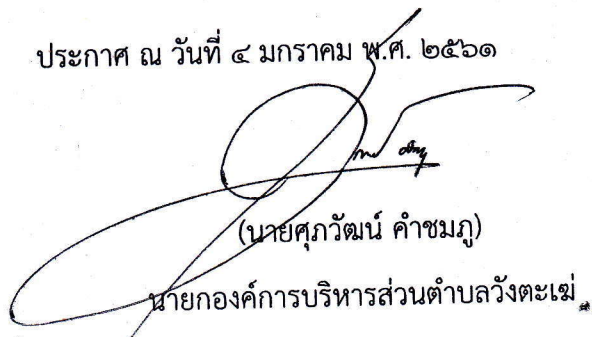 ประกาศ ณ วันที่ ๔ มกราคม พ.ศ. ๒๕๖๑
(นายศุภวัฒน์ คำชมภู)
นายกองค์การบริหารส่วนตำบลวังตะเฆ่